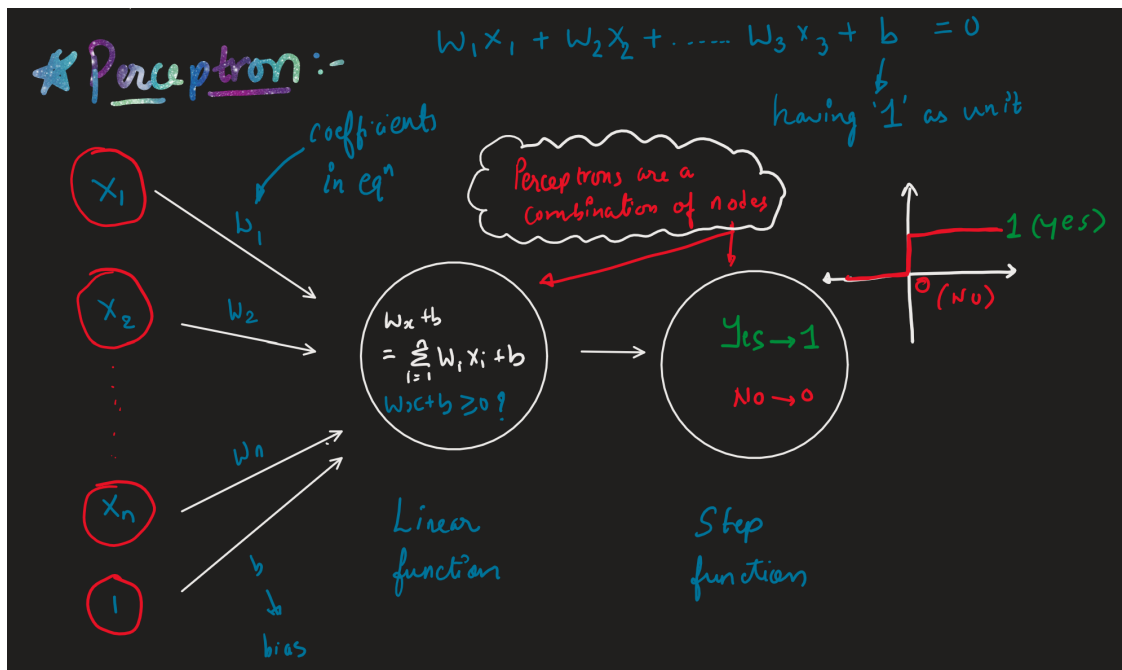 Perceptron:-
W₁X₁ + W₂X₂ + ...... W₃X₃ + b = 0
having '1' as unit
coefficients
in eqⁿ
Perceptrons are a
combination of nodes
X₁
W₁
1 (yes)
0 (NO)
X₂
W₂
Wx+b
= Σ i=1 n W₁Xᵢ+b
Wx+b ≥0?
Yes → 1
No → 0
Wn
Xn
Linear
function
Step
function
1
b
bias